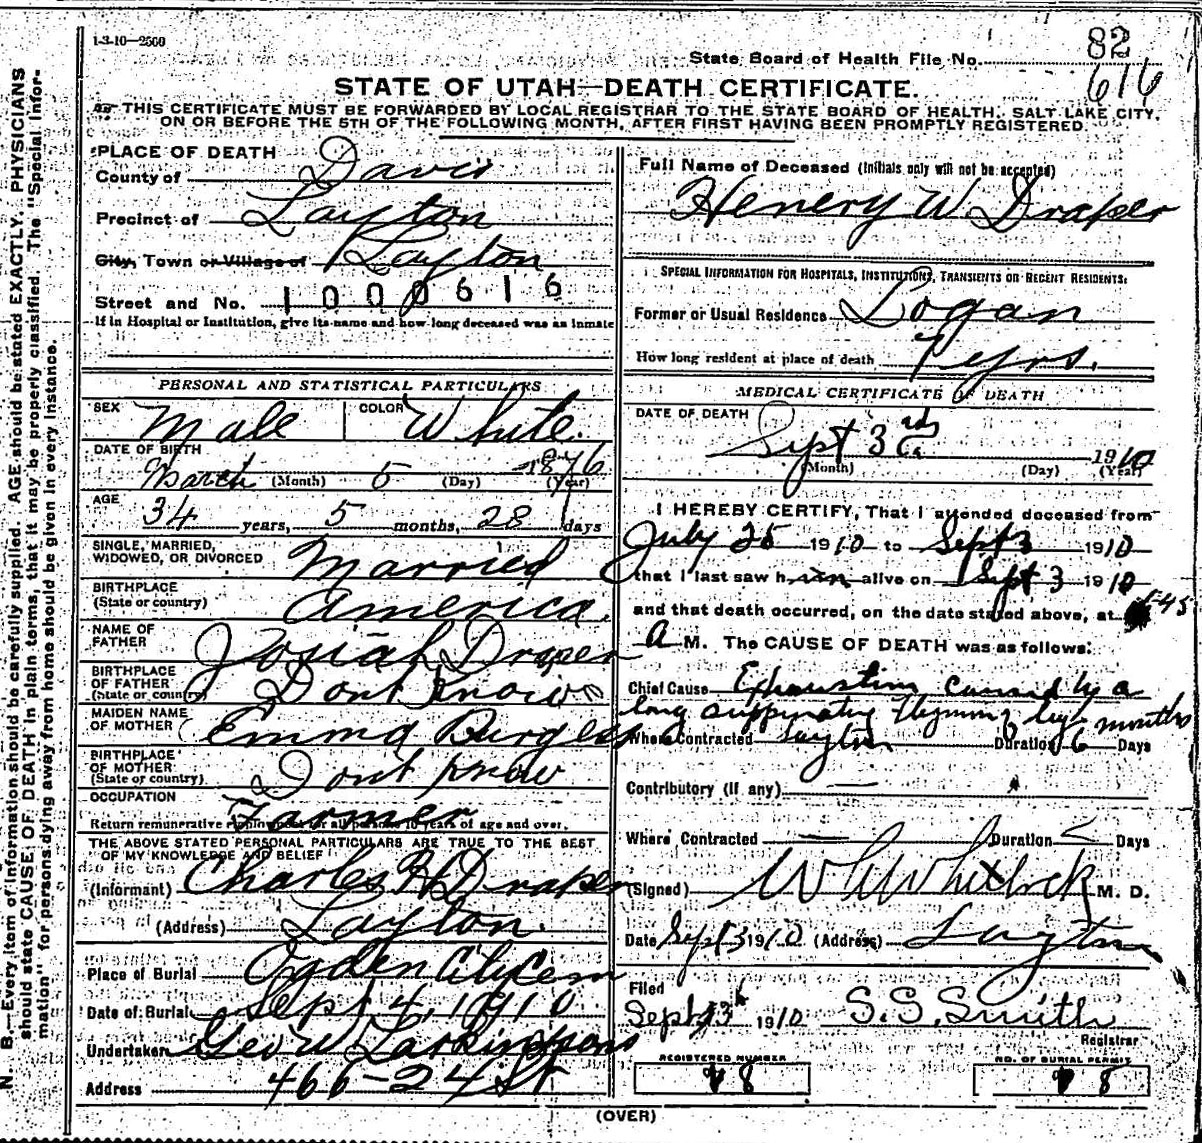 1-3-10—2560
82
State Board of Health File No. 616
STATE OF UTAH—DEATH CERTIFICATE.
THIS CERTIFICATE MUST BE FORWARDED BY LOCAL REGISTRAR TO THE STATE BOARD OF HEALTH, SALT LAKE CITY,
ON OR BEFORE THE 5TH OF THE FOLLOWING MONTH, AFTER FIRST HAVING BEEN PROMPTLY REGISTERED.
N. B.—Every item of information should be carefully supplied. AGE should be stated EXACTLY. PHYSICIANS
should state CAUSE OF DEATH in plain terms, that it may be properly classified. The "Special Infor-
mation" for persons dying away from home should be given in every instance.
PLACE OF DEATH
County of Davis
Precinct of Layton
City, Town or Village of Layton
Street and No. 1000616
If in Hospital or Institution, give its name and how long deceased was an inmate
PERSONAL AND STATISTICAL PARTICULARS
SEX Male COLOR White
DATE OF BIRTH
March 5 1876
(Month) (Day) (Year)
AGE
34 years, 5 months, 28 days
SINGLE, MARRIED,
WIDOWED, OR DIVORCED Married
BIRTHPLACE
(State or country) America
NAME OF
FATHER Josiah Draper
BIRTHPLACE
OF FATHER
(State or country) Dont Know
MAIDEN NAME
OF MOTHER Emma Burgess
BIRTHPLACE
OF MOTHER
(State or country) Dont know
OCCUPATION Farmer
Return remunerative employment for all persons 10 years of age and over.
THE ABOVE STATED PERSONAL PARTICULARS ARE TRUE TO THE BEST
OF MY KNOWLEDGE AND BELIEF
(Informant) Charles H Draper
(Address) Layton
Place of Burial Ogden City Cem
Date of Burial Sept 4, 1910
Undertaker Geo W Larkin & Sons
Address 466-24 St
Full Name of Deceased (Initials only will not be accepted)
Henery W Draper
SPECIAL INFORMATION FOR HOSPITALS, INSTITUTIONS, TRANSIENTS OR RECENT RESIDENTS:
Former or Usual Residence Logan
How long resident at place of death 7 yrs.
MEDICAL CERTIFICATE OF DEATH
DATE OF DEATH
Sept 3rd 1910
(Month) (Day) (Year)
I HEREBY CERTIFY, That I attended deceased from
July 25 1910 to Sept 3 1910
that I last saw him alive on Sept 3 1910
and that death occurred, on the date stated above, at 545
a M. The CAUSE OF DEATH was as follows:
Chief Cause Exhaustion caused by a
long suppurating leg months
Where Contracted Layton Duration 6 Days
Contributory (if any) —
Where Contracted — Duration Days
(Signed) Whitlock M. D.
Date Sept 3 1910 (Address) Layton
Filed
Sept 3 1910 S.S. Smith
Registrar
REGISTERED NUMBER
8
NO. OF BURIAL PERMIT
8
(OVER)